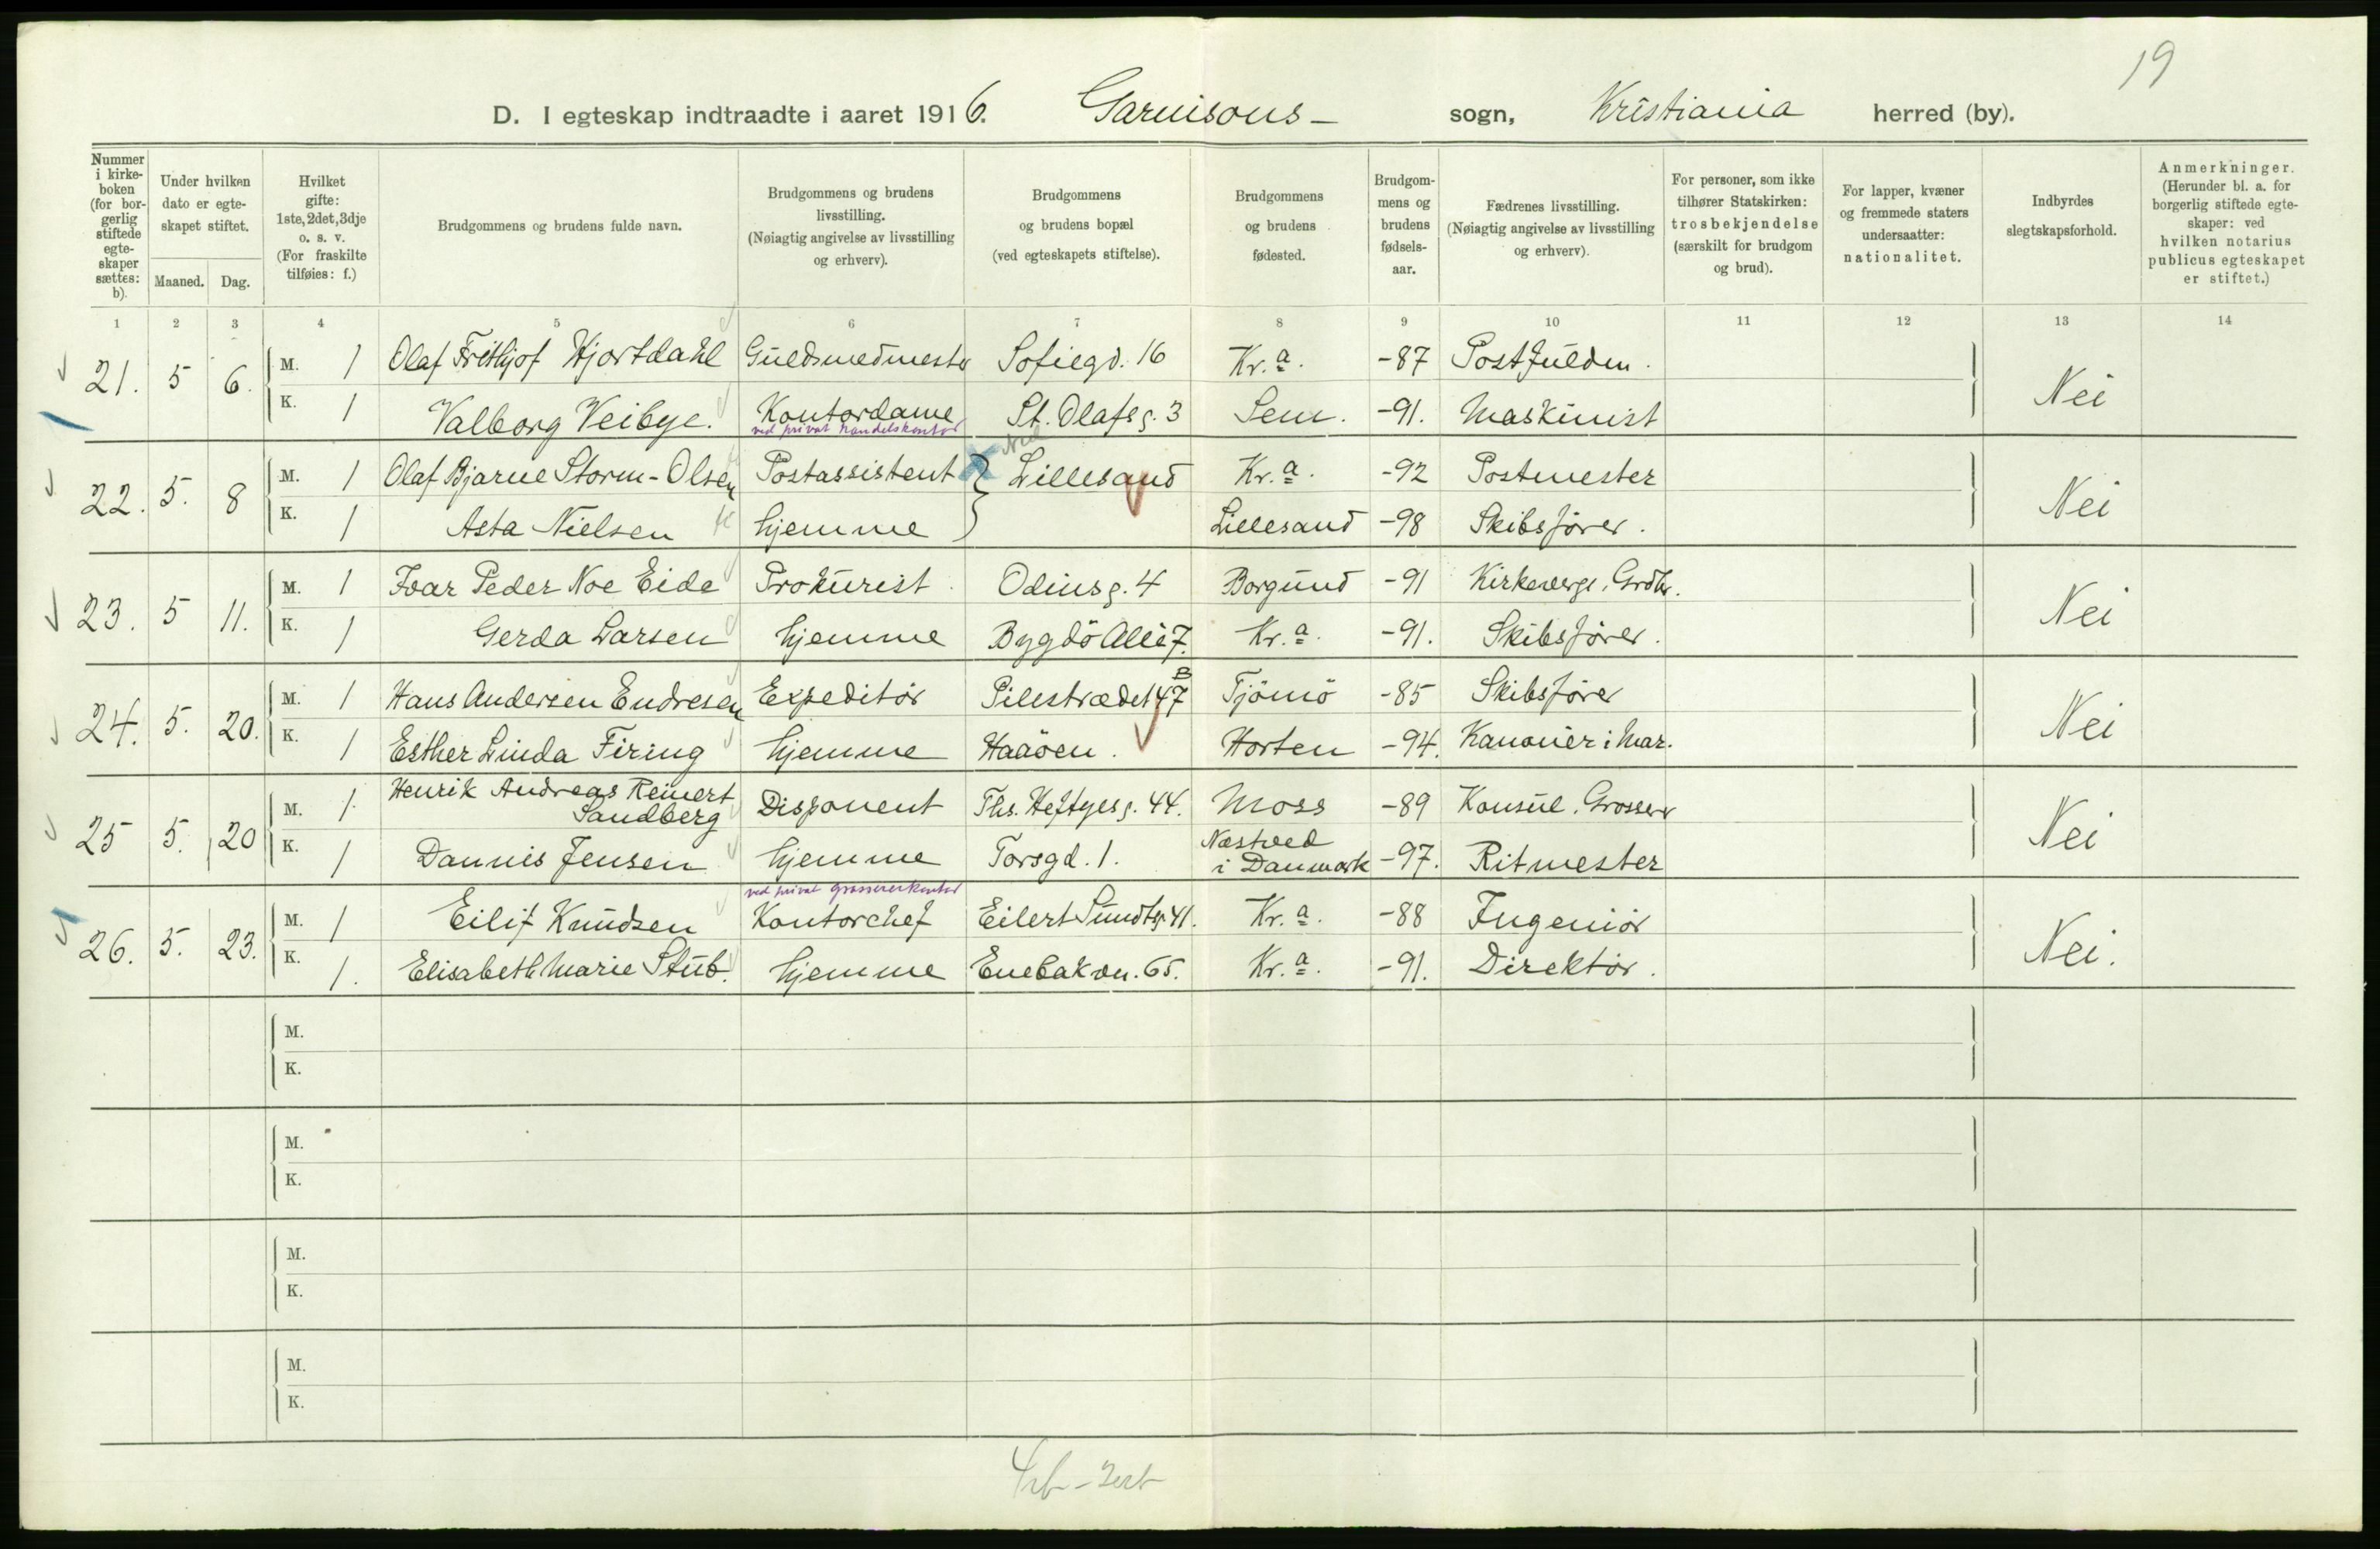 19
D. I egteskap indtraadte i aaret 1916. Garnisons- sogn, Kristiania herred (by).
Nummer i kirkeboken (for borgerlig stiftede egteskaper sættes: b).
Under hvilken dato er egteskapet stiftet.
Maaned. Dag.
Hvilket gifte: 1ste, 2det, 3dje o. s. v. (For fraskilte tilføies: f.)
Brudgommens og brudens fulde navn.
Brudgommens og brudens livsstilling. (Nøiagtig angivelse av livsstilling og erhverv).
Brudgommens og brudens bopæl (ved egteskapets stiftelse).
Brudgommens og brudens fødested.
Brudgommens og brudens fødselsaar.
Fædrenes livsstilling. (Nøiagtig angivelse av livsstilling og erhverv).
For personer, som ikke tilhører Statskirken: trosbekjendelse (særskilt for brudgom og brud).
For lapper, kvæner og fremmede staters undersaatter: nationalitet.
Indbyrdes slegtskapsforhold.
Anmerkninger. (Herunder bl. a. for borgerlig stiftede egteskaper: ved hvilken notarius publicus egteskapet er stiftet.)
1 2 3 4 5 6 7 8 9 10 11 12 13 14
21. 5 6. M. 1 Olaf Frithjof Hjortdahl Guldsmedmester Sofiegd. 16 Kr.a. -87 Postfuldm. Nei
K. 1 Valborg Veibye. Kontordame St. Olafsg. 3 Sem. -91. Maskinist
ved privat handelskontor
22. 5. 8 M. 1 Olaf Bjarne Storm-Olsen Postassistent } Lillesand Kr.a. -92 Postmester Nei
K. 1 Asta Nielsen hjemme Lillesand -98 Skibsfører.
23. 5 11. M. 1 Ivar Peder Noe Eide Prokurist. Odinsg. 4 Borgund -91 Kirkeverge, Grdbr. Nei
K. 1 Gerda Larsen hjemme Bygdö Allé 7. Kr.a. -91. Skibsfører.
24. 5. 20. M. 1 Hans Andersen Endresen Expeditör Pilestrædet 47 B Tjömö -85 Skibsfører Nei
K. 1 Esther Linda Firing hjemme Haaöen. Horten -94. Kanonér i Mar.
25 5. 20 M. 1 Henrik Andreas Reinert Sandberg Disponent Ths. Heftyesg. 44. Moss -89 Konsul. Grosserer Nei
K. 1 Dannis Jensen hjemme Torsgd. 1. Næstved i Danmark -97. Ritmester
ved privat grossererkontor
26. 5. 23. M. 1 Eilif Knudsen Kontorchef Eilert Sundtsg. 41. Kr.a. -88 Ingeniör Nei.
K. 1. Elisabeth Marie Stub. hjemme Enebakvn. 65. Kr.a. -91. Direktör.
M.
K.
M.
K.
M.
K.
M.
K.